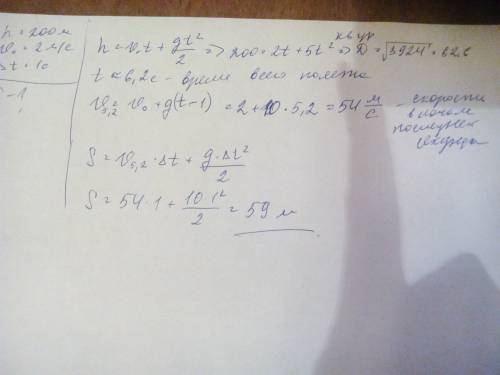 h = 200м
v₀ = 2м/с
Δt = 1с
S - ?
кв. ур
h = v₀t + gt²/2 => 200 = 2t + 5t² => D = √3924 ≈ 62,6
t ≈ 6,2с - время всего полета
v₅,₂ = v₀ + g(t-1) = 2 + 10 · 5,2 = 54 м/с - скорость
в начале
последней
секунды
S = v₅,₂ · Δt + g·Δt²/2
S = 54 · 1 + 10·1²/2 = 59 м